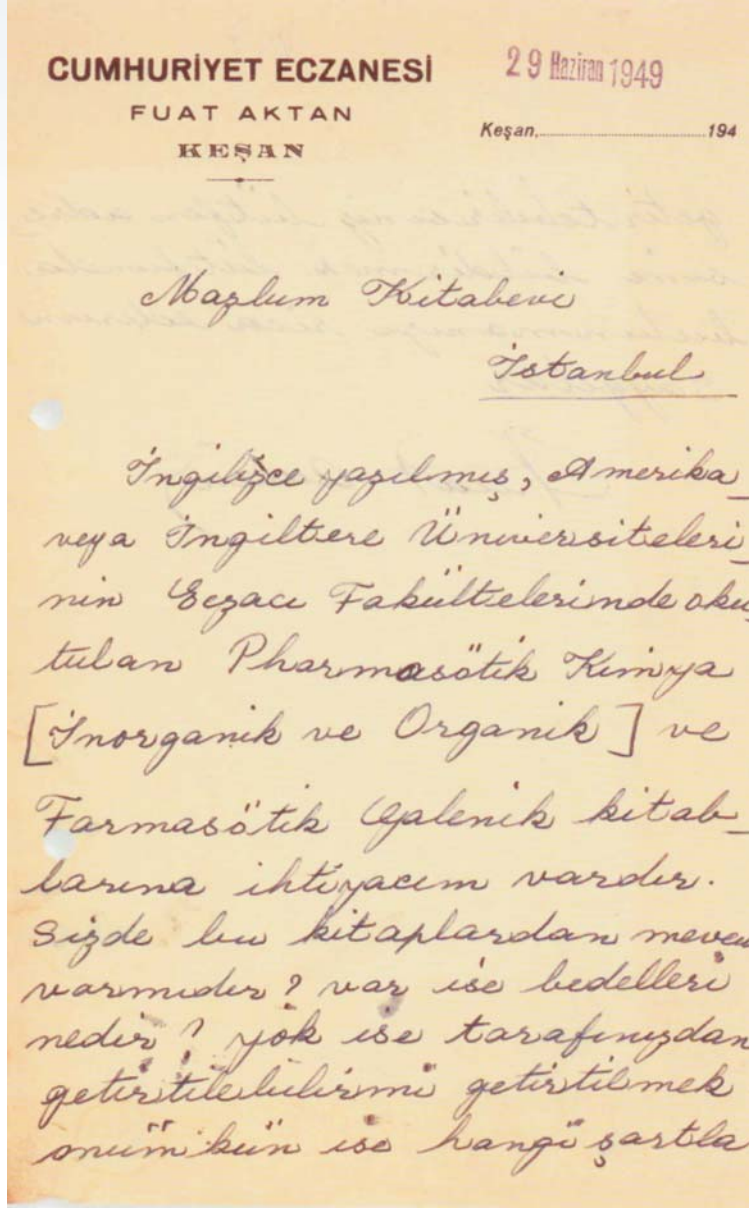 CUMHURİYET ECZANESİ
FUAT AKTAN
KEŞAN
29 Haziran 1949
Keşan,..............................194
Mazlum Kitabevi
İstanbul
İngilizce yazılmış, Amerika
veya İngiltere Üniversiteleri
nin Eczacı Fakültelerinde oku
tulan Pharmasötik Kimya
[İnorganik ve Organik] ve
Farmasötik Galenik kitab
larına ihtiyacım vardır.
Sizde bu kitaplardan mevcu
varmıdır? var ise bedelleri
nedir? yok ise tarafınızdan
getirtilebilirmi getirtilmek
mümkün ise hangi şartla